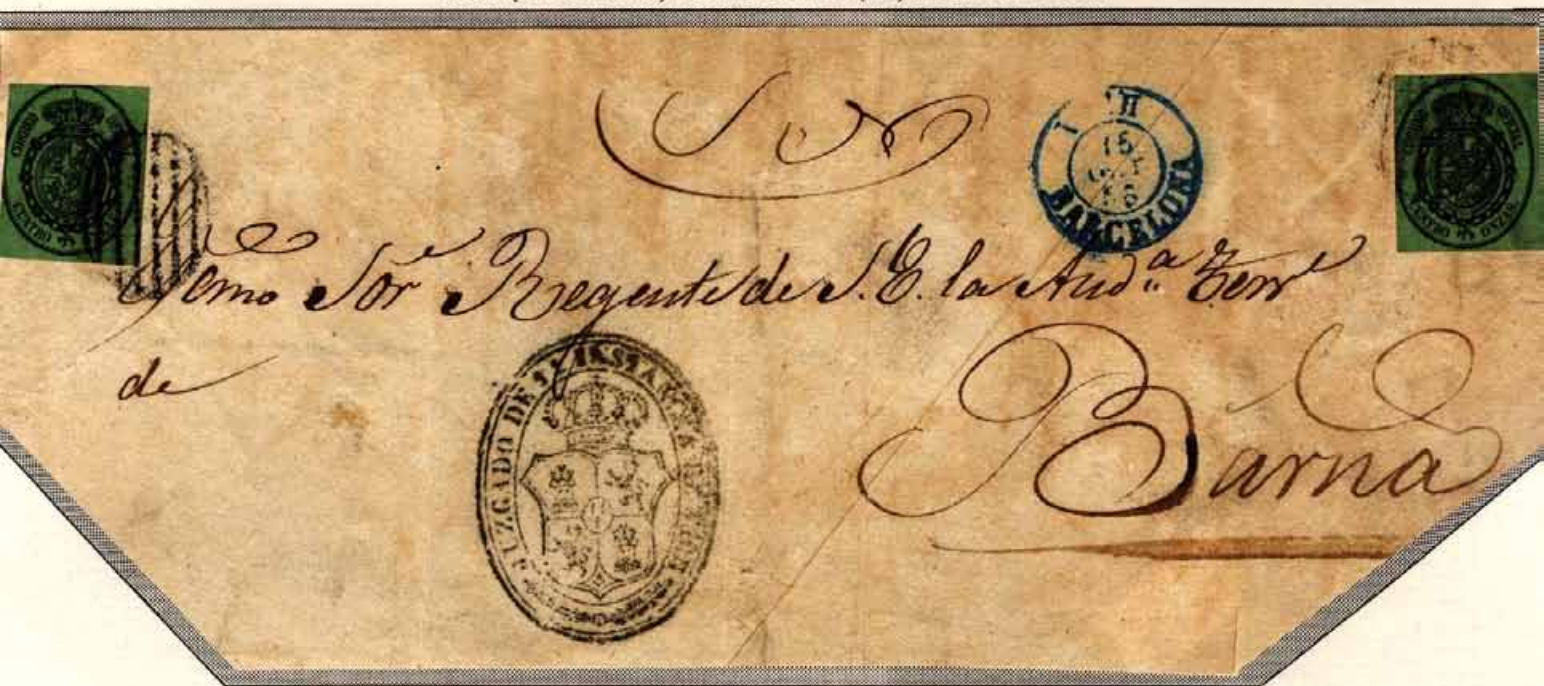 CORREO OFICIAL
CUATRO ONZAS
S N
15
BARCELONA
CORREO OFICIAL
CUATRO ONZAS
Exmo Sor Regente de S. E. la Audª Terrl
de
Barna
JUZGADO DE 1ª INSTANCIA DE